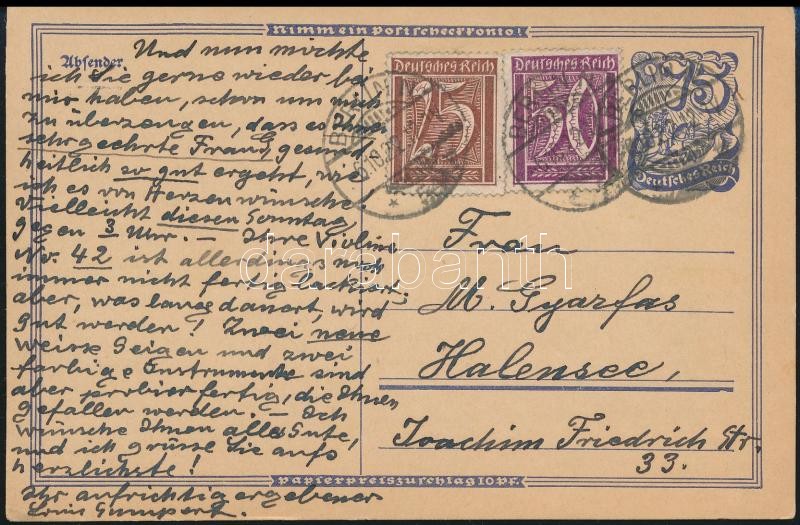 Nimm ein Postscheckkonto!
Absender
Und nun möchte
ich Sie gerne wieder bei
mir haben, schon um mich
zu überzeugen, dass es Ihnen
sehr geehrte Frau, gesund-
heitlich so gut ergeht, wie
ich es von Herzen wünsche
Vielleicht diesen Sonntag,
gegen 3 Uhr. — Ihre Violine
No. 42 ist allerdings noch
immer nicht fertig lackiert;
aber, was lange dauert, wird
gut werden! Zwei neue
weisse Geigen und zwei
farbige Instrumente sind
aber probierfertig, die Ihnen
gefallen werden. — Ich
wünsche Ihnen alles Gute,
und ich grüsse Sie aufs
herzlichste!
Ihr aufrichtig ergebener
Louis Gumpert.
Deutsches Reich
25
Deutsches Reich
50
75
Deutsches Reich
BERLIN
Frau
M. Gyarfas
Halensee,
Joachim Friedrich Str.
33.
darabanth
Papierpreiszuschlag 10 Pf.